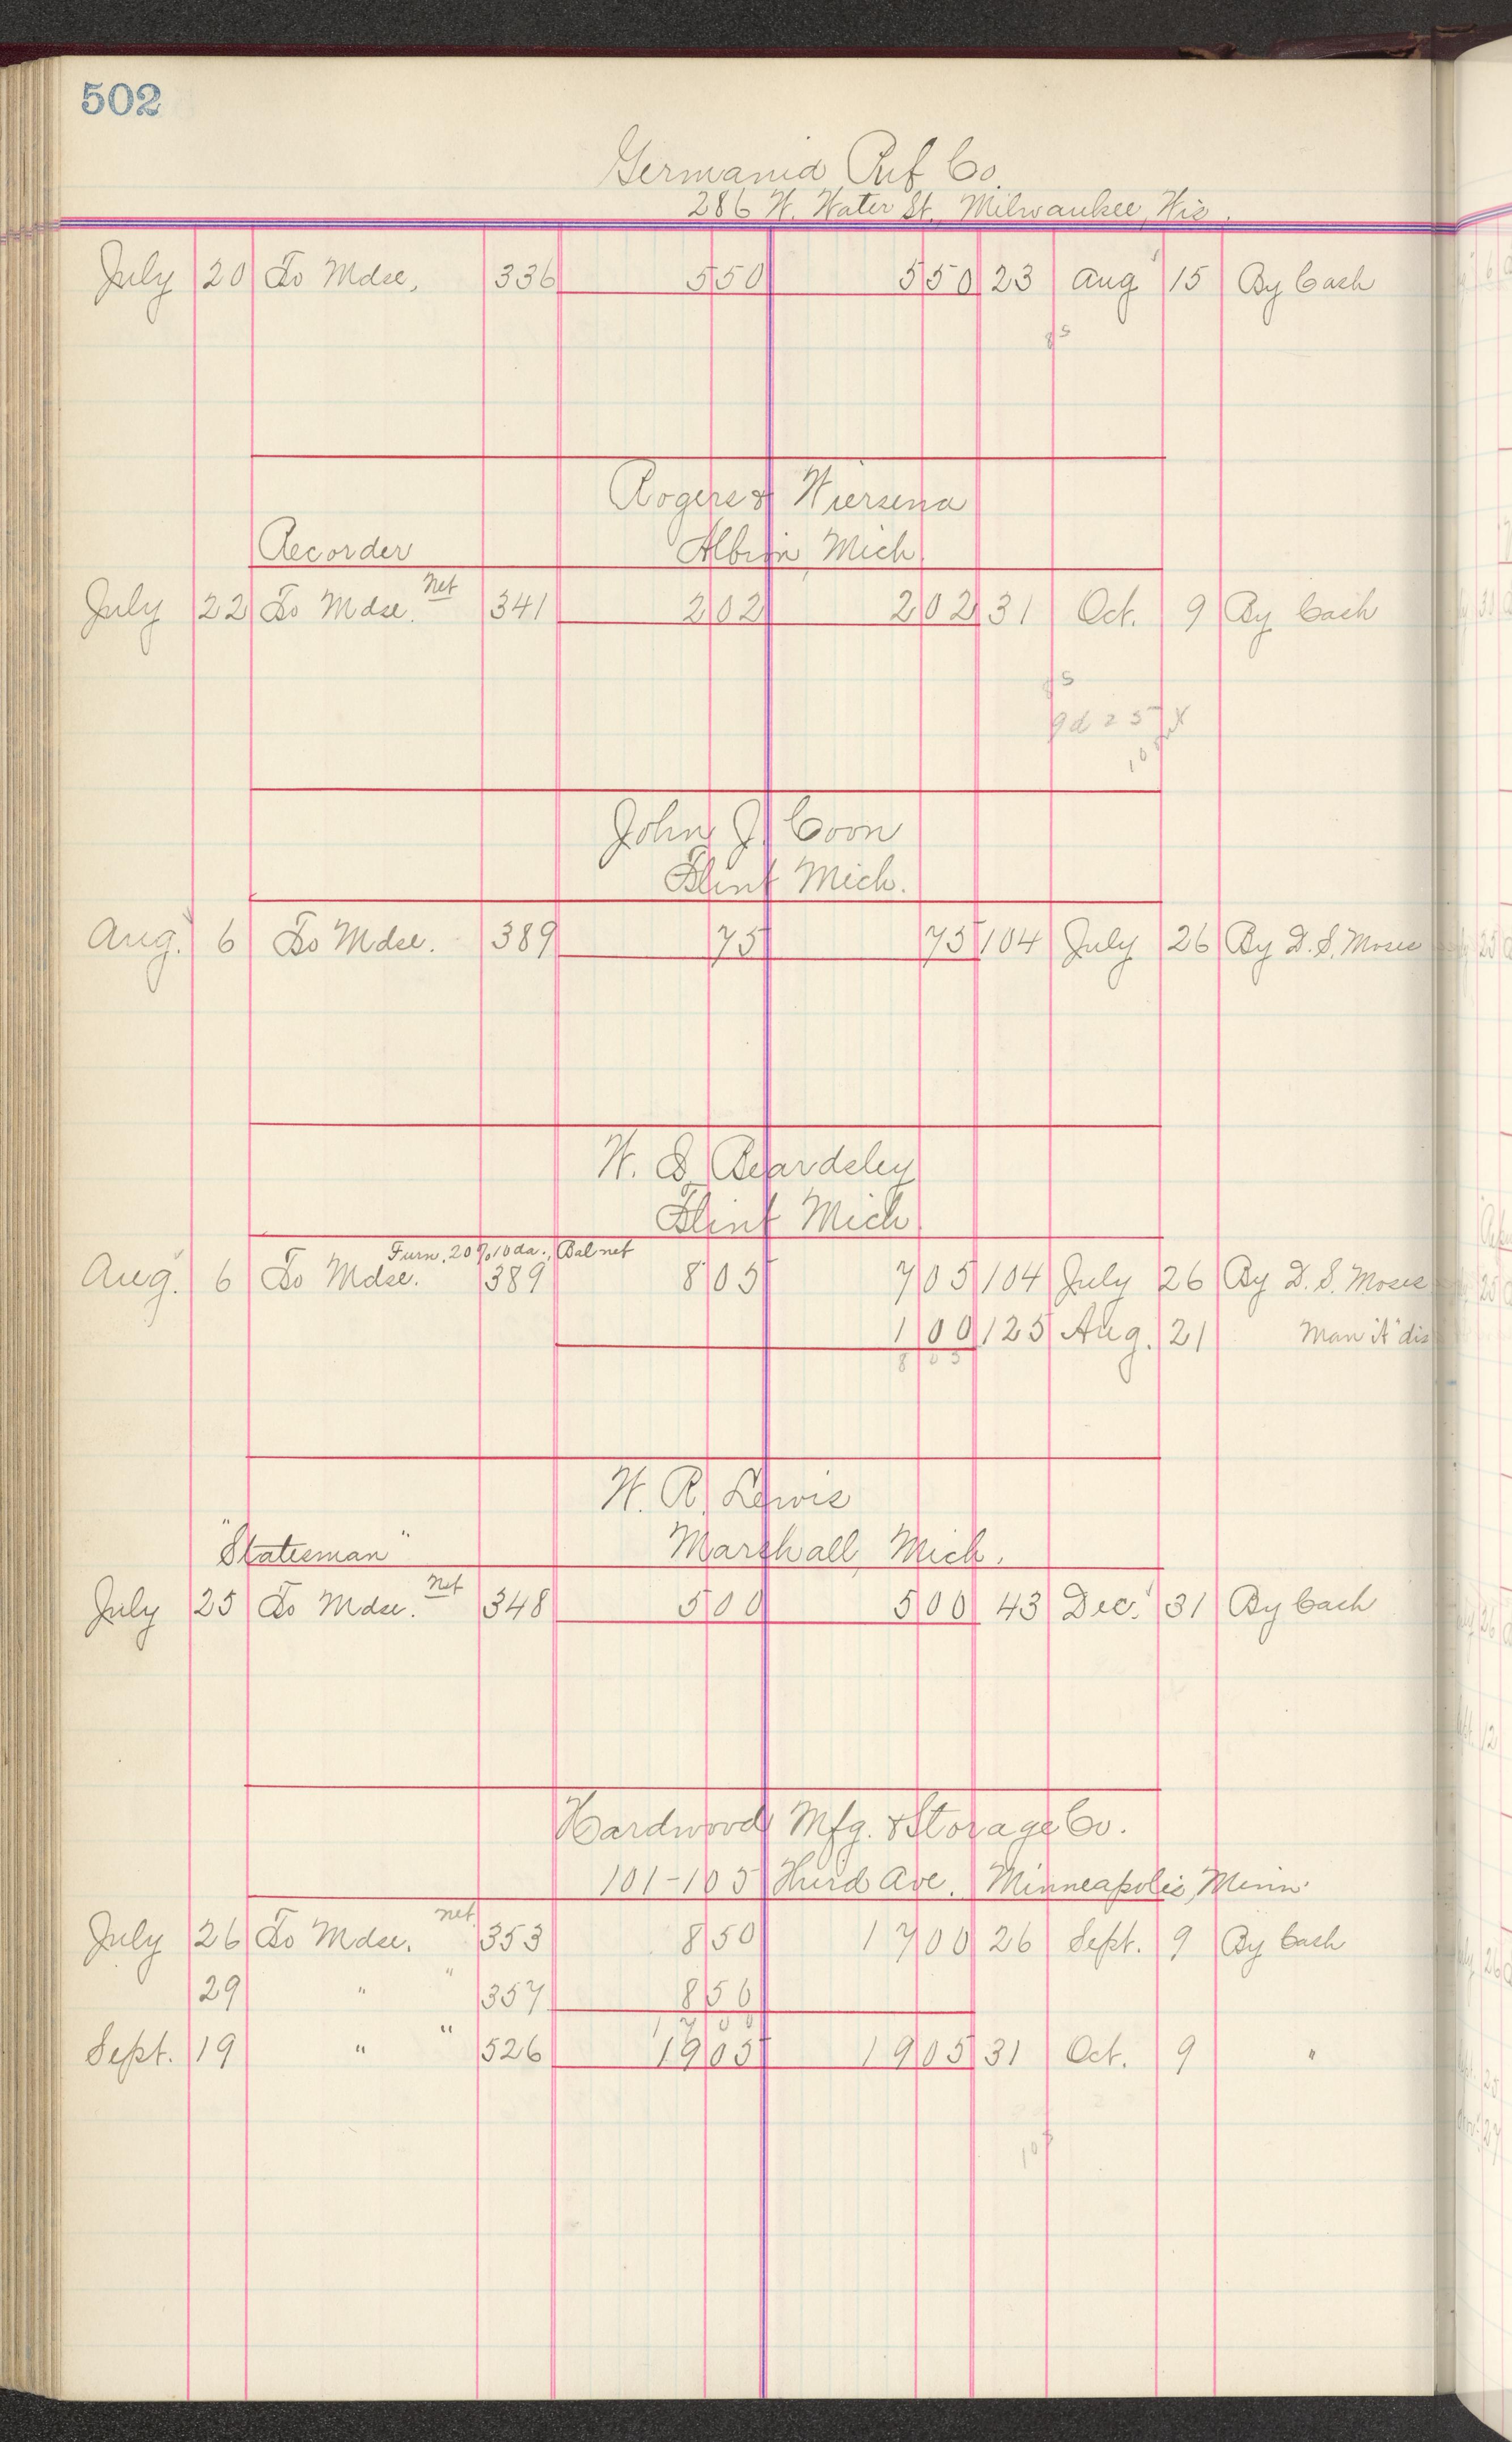 502
Germania Pub Co.
286 W. Water St. Milwaukee, Wis.
July 20 To Mdse, 336 5 50 5 50 23 Aug 15 By Cash
Rogers & Wiersena
Recorder Albion, Mich.
July 22 To Mdse. Net 341 2 02 2 02 31 Oct. 9 By Cash
John J. Coon
Flint Mich.
Aug. 6 To Mdse. 389 75 75 104 July 26 By D. S. Moses
W. S. Beardsley
Flint Mich
Furn. 20% 10 da., Bal net
Aug. 6 To Mdse. 389 8 05 7 05 104 July 26 By D. S. Moses
1 00 125 Aug. 21 Man "A" dis
8 05
W. R. Lewis
"Statesman" Marshall, Mich.
July 25 To Mdse. Net 348 5 00 5 00 43 Dec. 31 By Cash
Hardwood Mfg. & Storage Co.
101-105 Third Ave. Minneapolis, Minn.
July 26 To Mdse. net 353 8 50 17 00 26 Sept. 9 By Cash
29 " " 357 8 50
17 00
Sept. 19 " " 526 19 05 19 05 31 Oct. 9 "